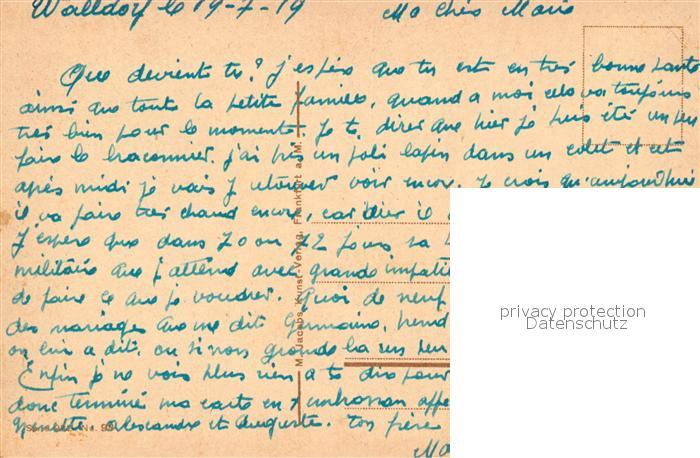 Walldorf le 19-7-19 Ma Chère Marie
Que devient tu? j'espère que tu est en très bonne santé
ainsi que toute la petite famiee, quand a moi cela va toujours
très bien pour le momente. Je te direr que hier je suis été un peu
faire le braconnier. j'ai pris un joli lapin dans un colet et cet
après midi je vais y retourner voir encor. Je crois qu'aujourd'hui
il va faire très chaud encore, car hier il
J'espère que dans 20 ou 22 jours sa
militaire que j'attend avec grande impatie
de faire ce que je voudrer. Quoi de neuf
des mariage que me dit Germaine,
on lui a dit. ou si non gronde la un peu
Enfin je ne vois plus rien a te dire pour
donc terminé ma carte en
alexandre et Auguste. ton frère
Ma
M. Jacobs, Kunst-Verlag, Frankfurt a. M.
privacy protection
Datenschutz